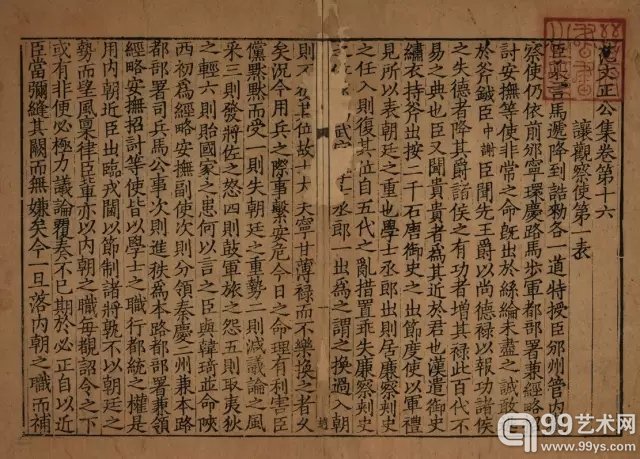 文正公集卷第十六
讓觀察使第一表
臣某言馬遞降到誥勑各一道特授臣邠州管內
察使仍依前邠寧環慶路馬步軍都部署兼經略
討安撫等使非常之命旣出於絲綸未盡之誠敢
於斧鉞臣中謝臣聞先王爵以尚德祿以報功諸侯
之失德者降其爵諸侯之有功者增其祿此百代不
易之典也臣又聞貴貴者為其近於君也漢遣御史
繡衣持斧出按二千石唐御史之出節度使以軍禮
見所以表朝廷之重也學士丞郎出則居廉察刺史
之任入則復其位自五代之亂措置乖失廉察刺史
武丞郎一出為之謂之換過入朝
則不其位故士大寧甘薄祿而不樂換之者久
矣況今用兵之際事繫安危今日之命理有利害臣
儻黙黙而受一則失朝廷之重勢二則減議論之風
采三則發將佐之怒四則鼓軍旅之怨五則取夷狄
之輕六則貽國家之患何以言之臣與韓琦並命陝
西初為經略安撫副使次則分領秦慶二州兼本路
都部署司兵馬公事次則進秩為本路都部署兼領
經略安撫招討等使皆以學士之職行都統之權是
用內朝近臣出臨戎閫以節制諸將孰不以朝廷之
勢而望風稟律臣輩亦以內朝之職每覩詔令之下
或有非便必極力議論覆奏不已期於必正自以近
臣當彌縫其闕而無嫌矣今一旦落內朝之職而補
99艺术网
www.99ys.com